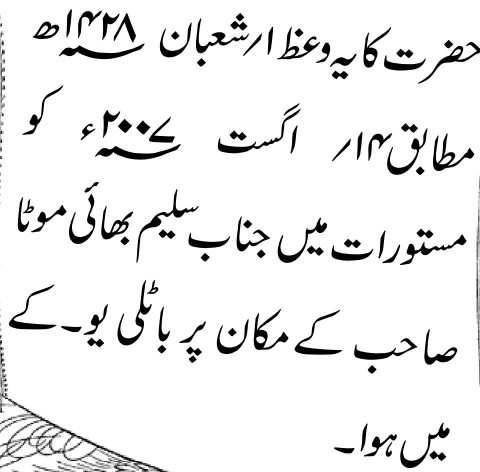 حضرت کا یہ وعظ ۱/شعبان ۱۴۲۸ھ
مطابق ۱۴/ اگست ۲۰۰۷ء کو
مستورات میں جناب سلیم بھائی موٹا
صاحب کے مکان پر باٹلی یو۔ کے
میں ہوا۔